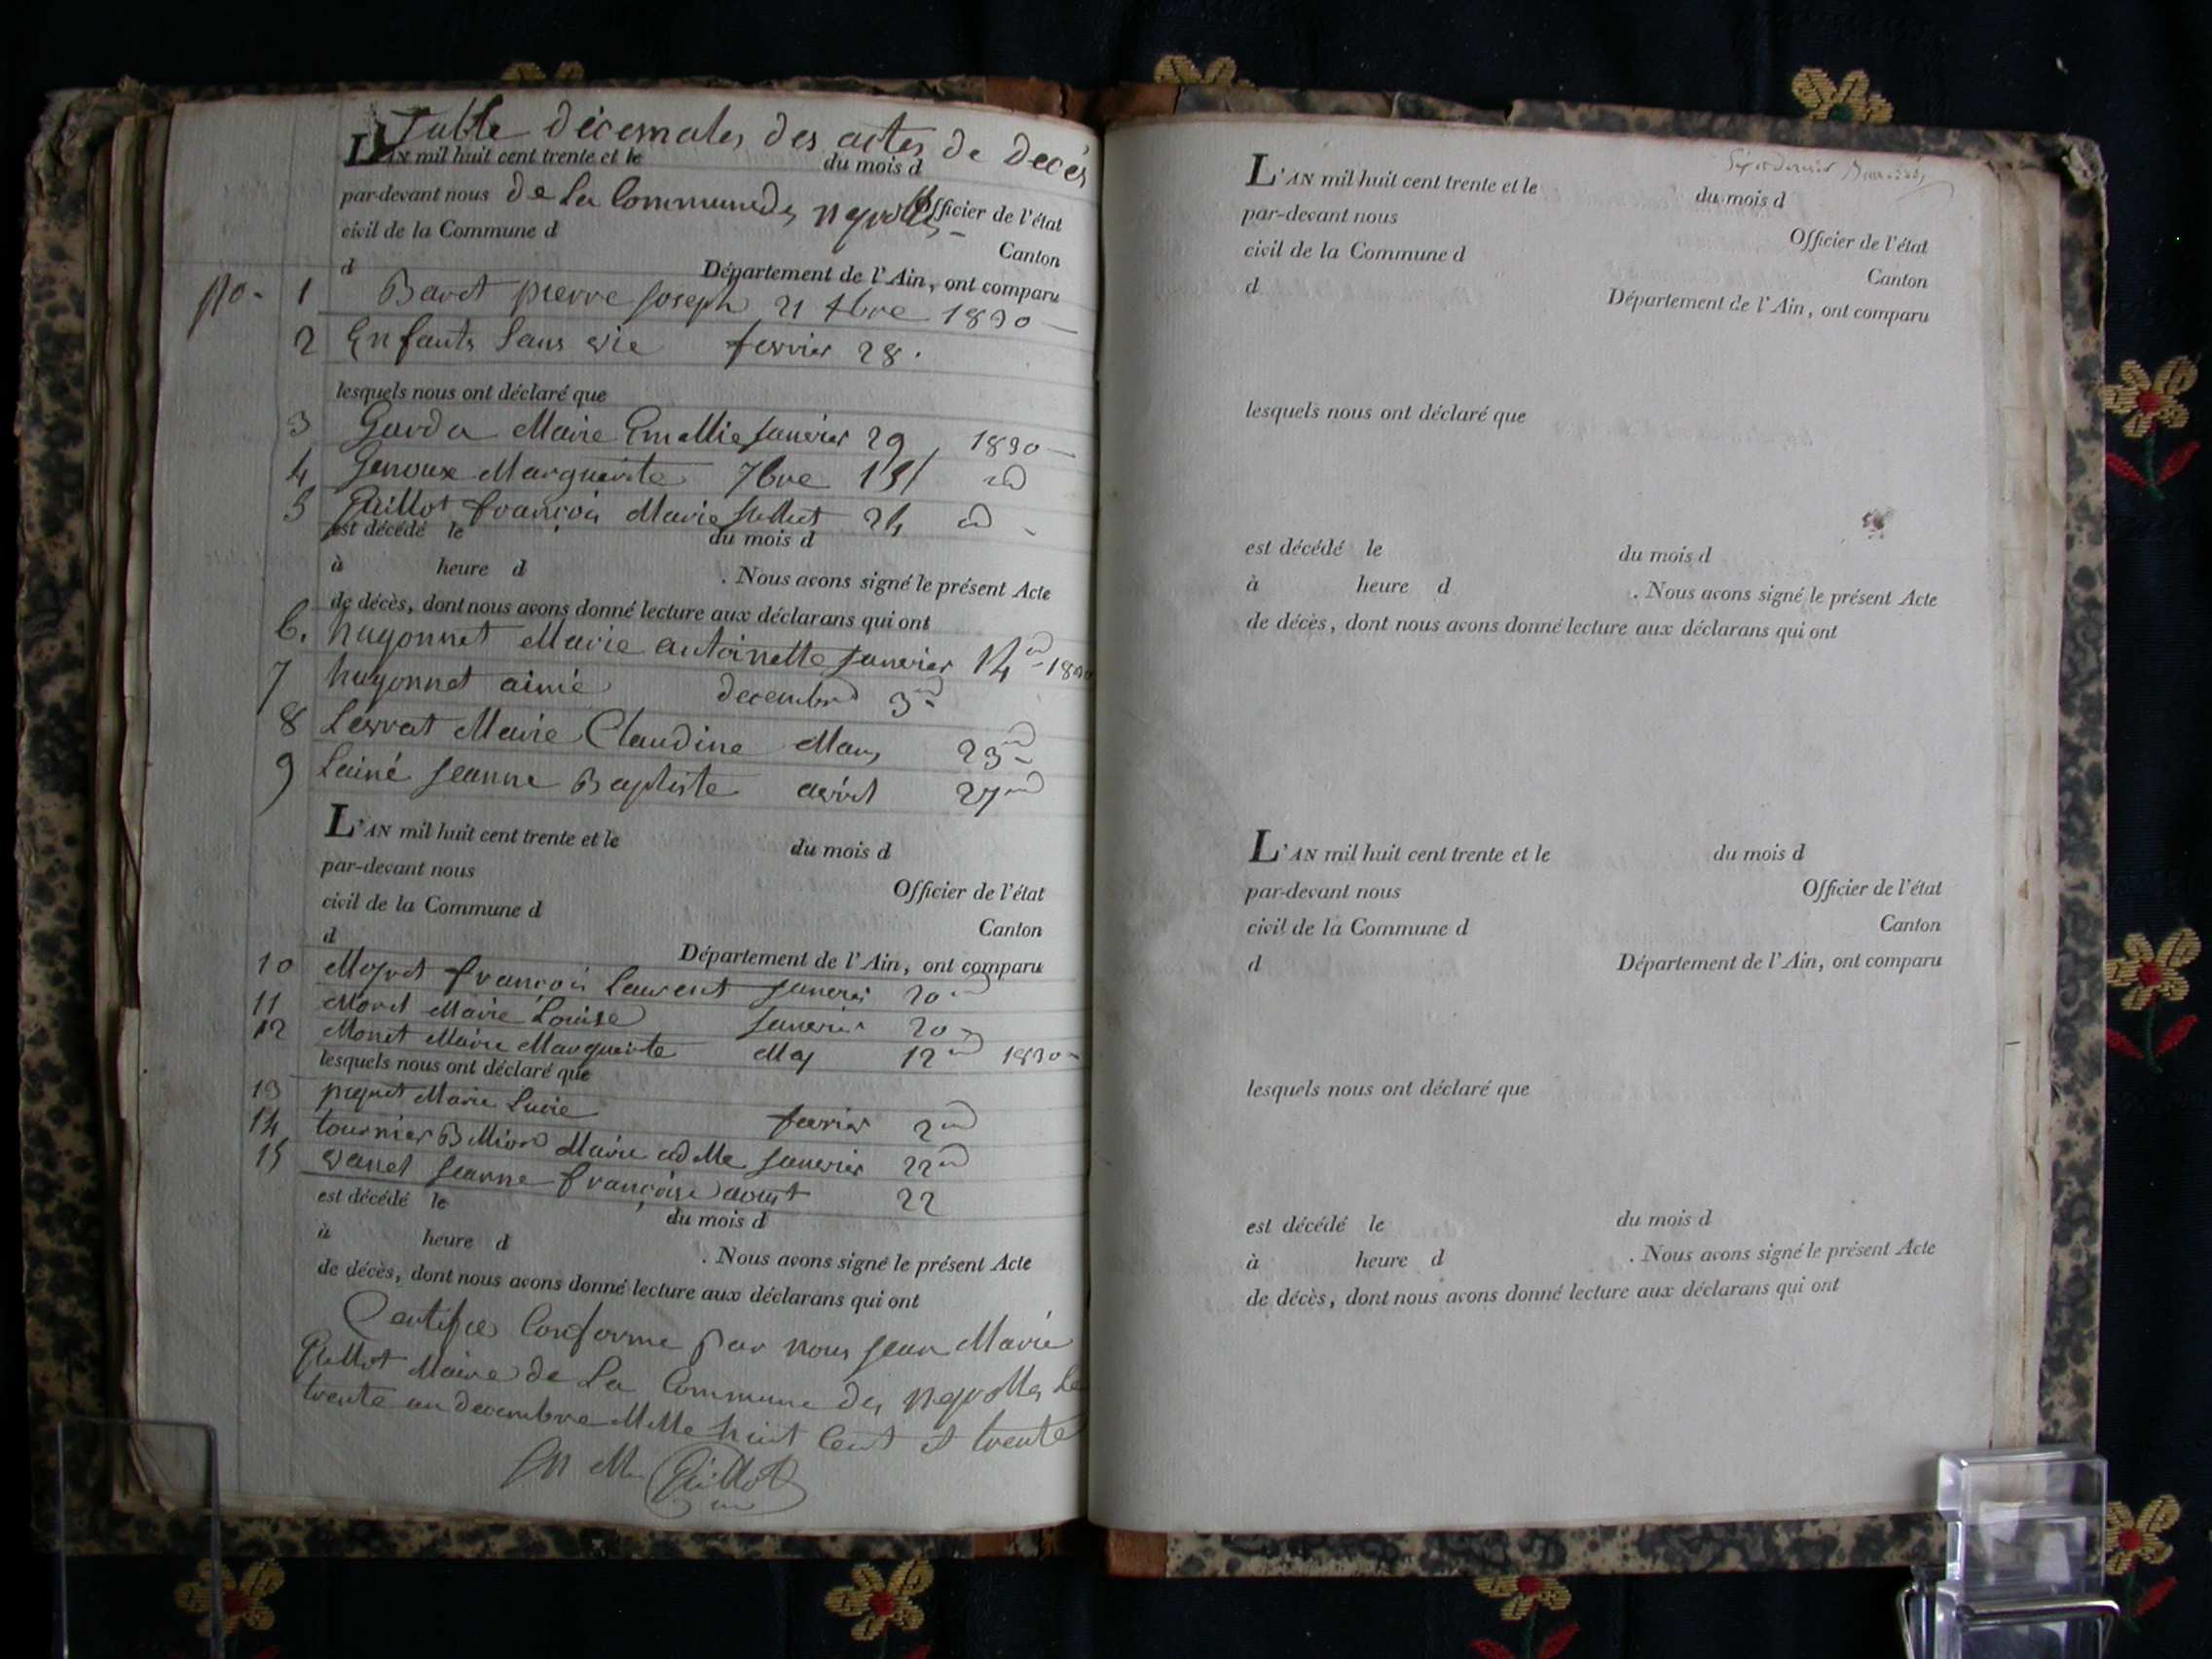 Table décemales des actes de decés
L'AN mil huit cent trente et le du mois d
par-devant nous de la Commune des neyrolles Officier de l'état
civil de la Commune d Canton
d Département de l'Ain, ont comparu
No. 1 Baret pierre Joseph 21 1830
2 Enfants Sans vie fevrier 28.
lesquels nous ont déclaré que
3 Garda Marie Emellie Janvier 29 1830
4 Genoux Marguerite 7bre 15 id
5 Guillot françois Marie Juillet 24 id
est décédé le du mois d
à heure d . Nous avons signé le présent Acte
de décès, dont nous avons donné lecture aux déclarans qui ont
6. hugonnet Marie antoinette Janvier 14 id 1830
7 hugonnet aimé decembre 3 id
8 Levrat Marie Claudine Mars 23 id
9 Lainé Jeanne Baptiste avril 27 id
L'AN mil huit cent trente et le du mois d
par-devant nous Officier de l'état
civil de la Commune d Canton
d Département de l'Ain, ont comparu
10 françois Laurent Janvier 20 id
11 Morel Marie Louise Janvier 20
12 Monet Marie Marguerite May 12 id 1830
lesquels nous ont déclaré que
13 piquet Marie Lucie fevrier 2 id
14 tournier Billion Marie adelle Janvier 22 id
15 vanel Jeanne françoise aoust 22
est décédé le du mois d
à heure d . Nous avons signé le présent Acte
de décès, dont nous avons donné lecture aux déclarans qui ont
Certifié Conforme par nous Jean Marie
Guillot Maire de La Commune des neyrolles Le
trente un decembre Mille huit Cent et trente
Guillot
L'AN mil huit cent trente et le du mois d
par-devant nous Officier de l'état
civil de la Commune d Canton
d Département de l'Ain, ont comparu
lesquels nous ont déclaré que
est décédé le du mois d
à heure d . Nous avons signé le présent Acte
de décès, dont nous avons donné lecture aux déclarans qui ont
L'AN mil huit cent trente et le du mois d
par-devant nous Officier de l'état
civil de la Commune d Canton
d Département de l'Ain, ont comparu
lesquels nous ont déclaré que
est décédé le du mois d
à heure d . Nous avons signé le présent Acte
de décès, dont nous avons donné lecture aux déclarans qui ont